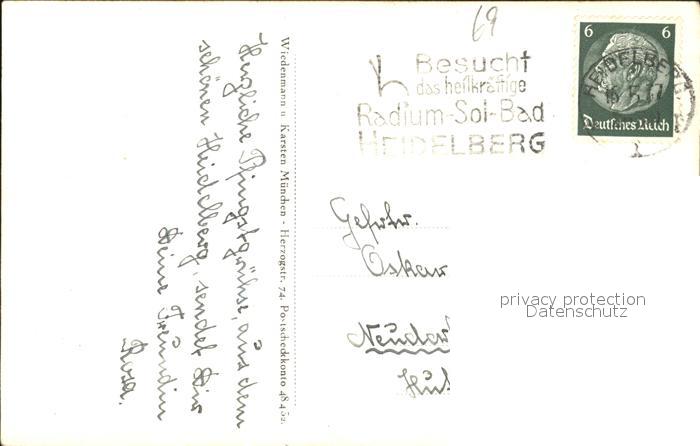 69
Besucht
das heilkräftige
Radium-Sol-Bad
HEIDELBERG
6 6
Deutsches Reich
HEIDELBERG
Herzliche Pfingstgrüße, aus dem
schönen Heidelberg, sendet Dir
Deine Freundin
Rosa.
Wiedenmann u. Karsten München - Herzogstr. 74. Postscheckkonto 48452.
Gefrtr.
Oskar
privacy protection
Datenschutz